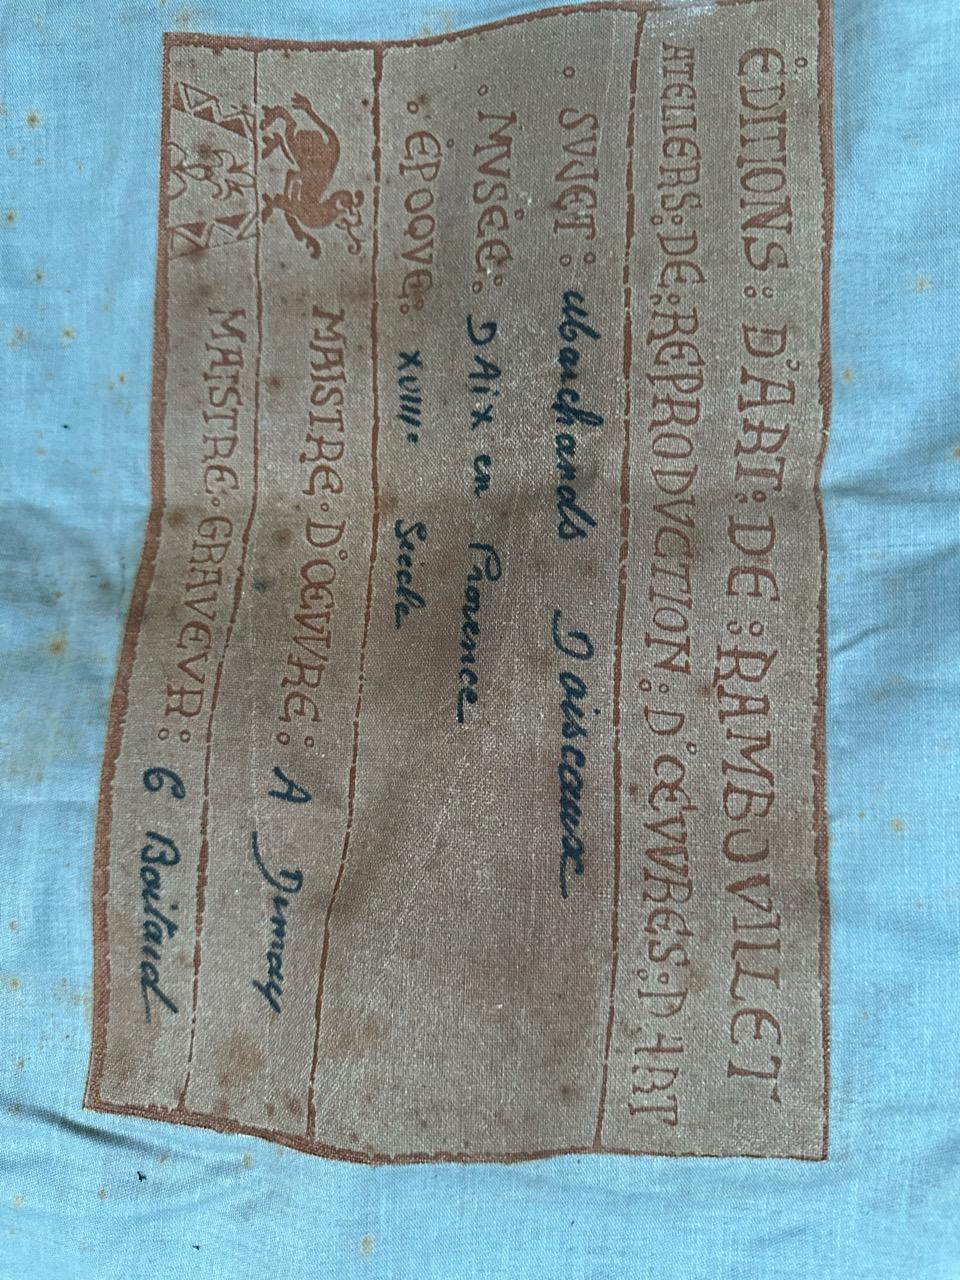 ÉDITIONS: D'ART: DE: RAMBOVILLET
ATELIERS: DE: REPRODVCTION: D'ŒVVRES: D'ART
SVJET: Marchands D oiseaux
MVSÉE: D Aix en Provence
ÉPOQVE: XVIII. Siecle
MAISTRE D'ŒVVRE: A Dumay
MAISTRE GRAVEVR: G